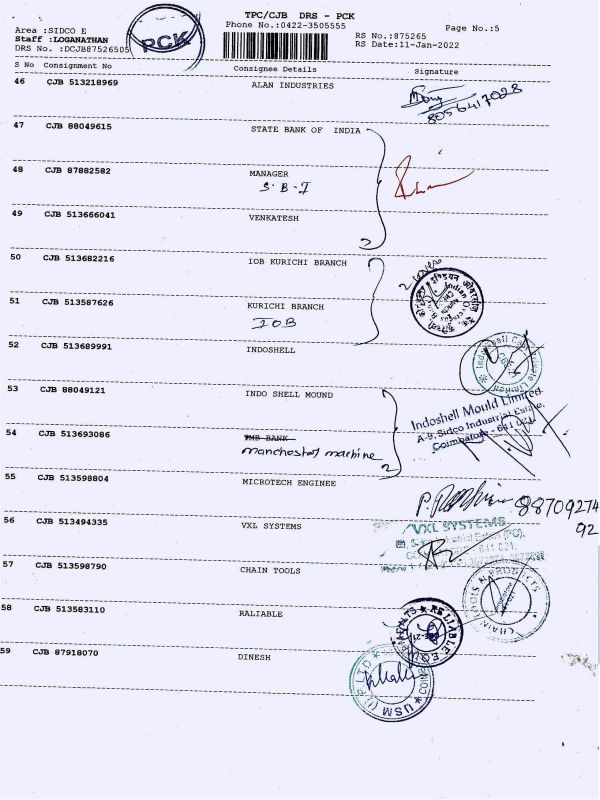 TPC/CJB DRS - PCK
Phone No.:0422-3505555
Page No.:5
Area :SIDCO E
Staff :LOGANATHAN
DRS No. :DCJB87526505
PCK
RS No.:875265
RS Date:11-Jan-2022
S No Consignment No Consignee Details Signature
46 CJB 513218969 ALAN INDUSTRIES
8056417028
47 CJB 88049615 STATE BANK OF INDIA
48 CJB 87882582 MANAGER
S.B.I
49 CJB 513666041 VENKATESH
2
50 CJB 513682216 IOB KURICHI BRANCH
51 CJB 513587626 KURICHI BRANCH
IOB
52 CJB 513689991 INDOSHELL
53 CJB 88049121 INDO SHELL MOUND
Indoshell Mould Limited
A-9, Sidco Industrial Estate,
Coimbatore - 641 021
54 CJB 513693086 TMB BANK
machine
2
55 CJB 513598804 MICROTECH ENGINEE
88709274
92
56 CJB 513494335 VXL SYSTEMS
VXL SYSTEMS
641 021.
57 CJB 513598790 CHAIN TOOLS
58 CJB 513583110 RALIABLE
RELIABLE
59 CJB 87918070 DINESH
USM (I) P LTD